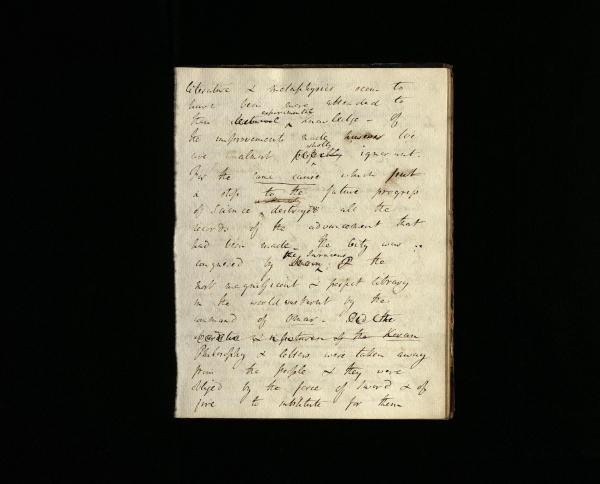 literature & metaphysics seem to
have been more attended to
than experimental knowledge - of
the improvements made we
are almost wholly ignorant.
For the same cause which put
a stop to the future progress
of Science destroyed all the
records of the advancement that
had been made - the City was
conquered by the Saracens & the
most magnificent & perfect library
in the world was burnt by the
command of Omar -
& of the Koran
Philosophy & letters were taken away
from the people & they were
obliged by the force of sword & of
fire to substitute for them